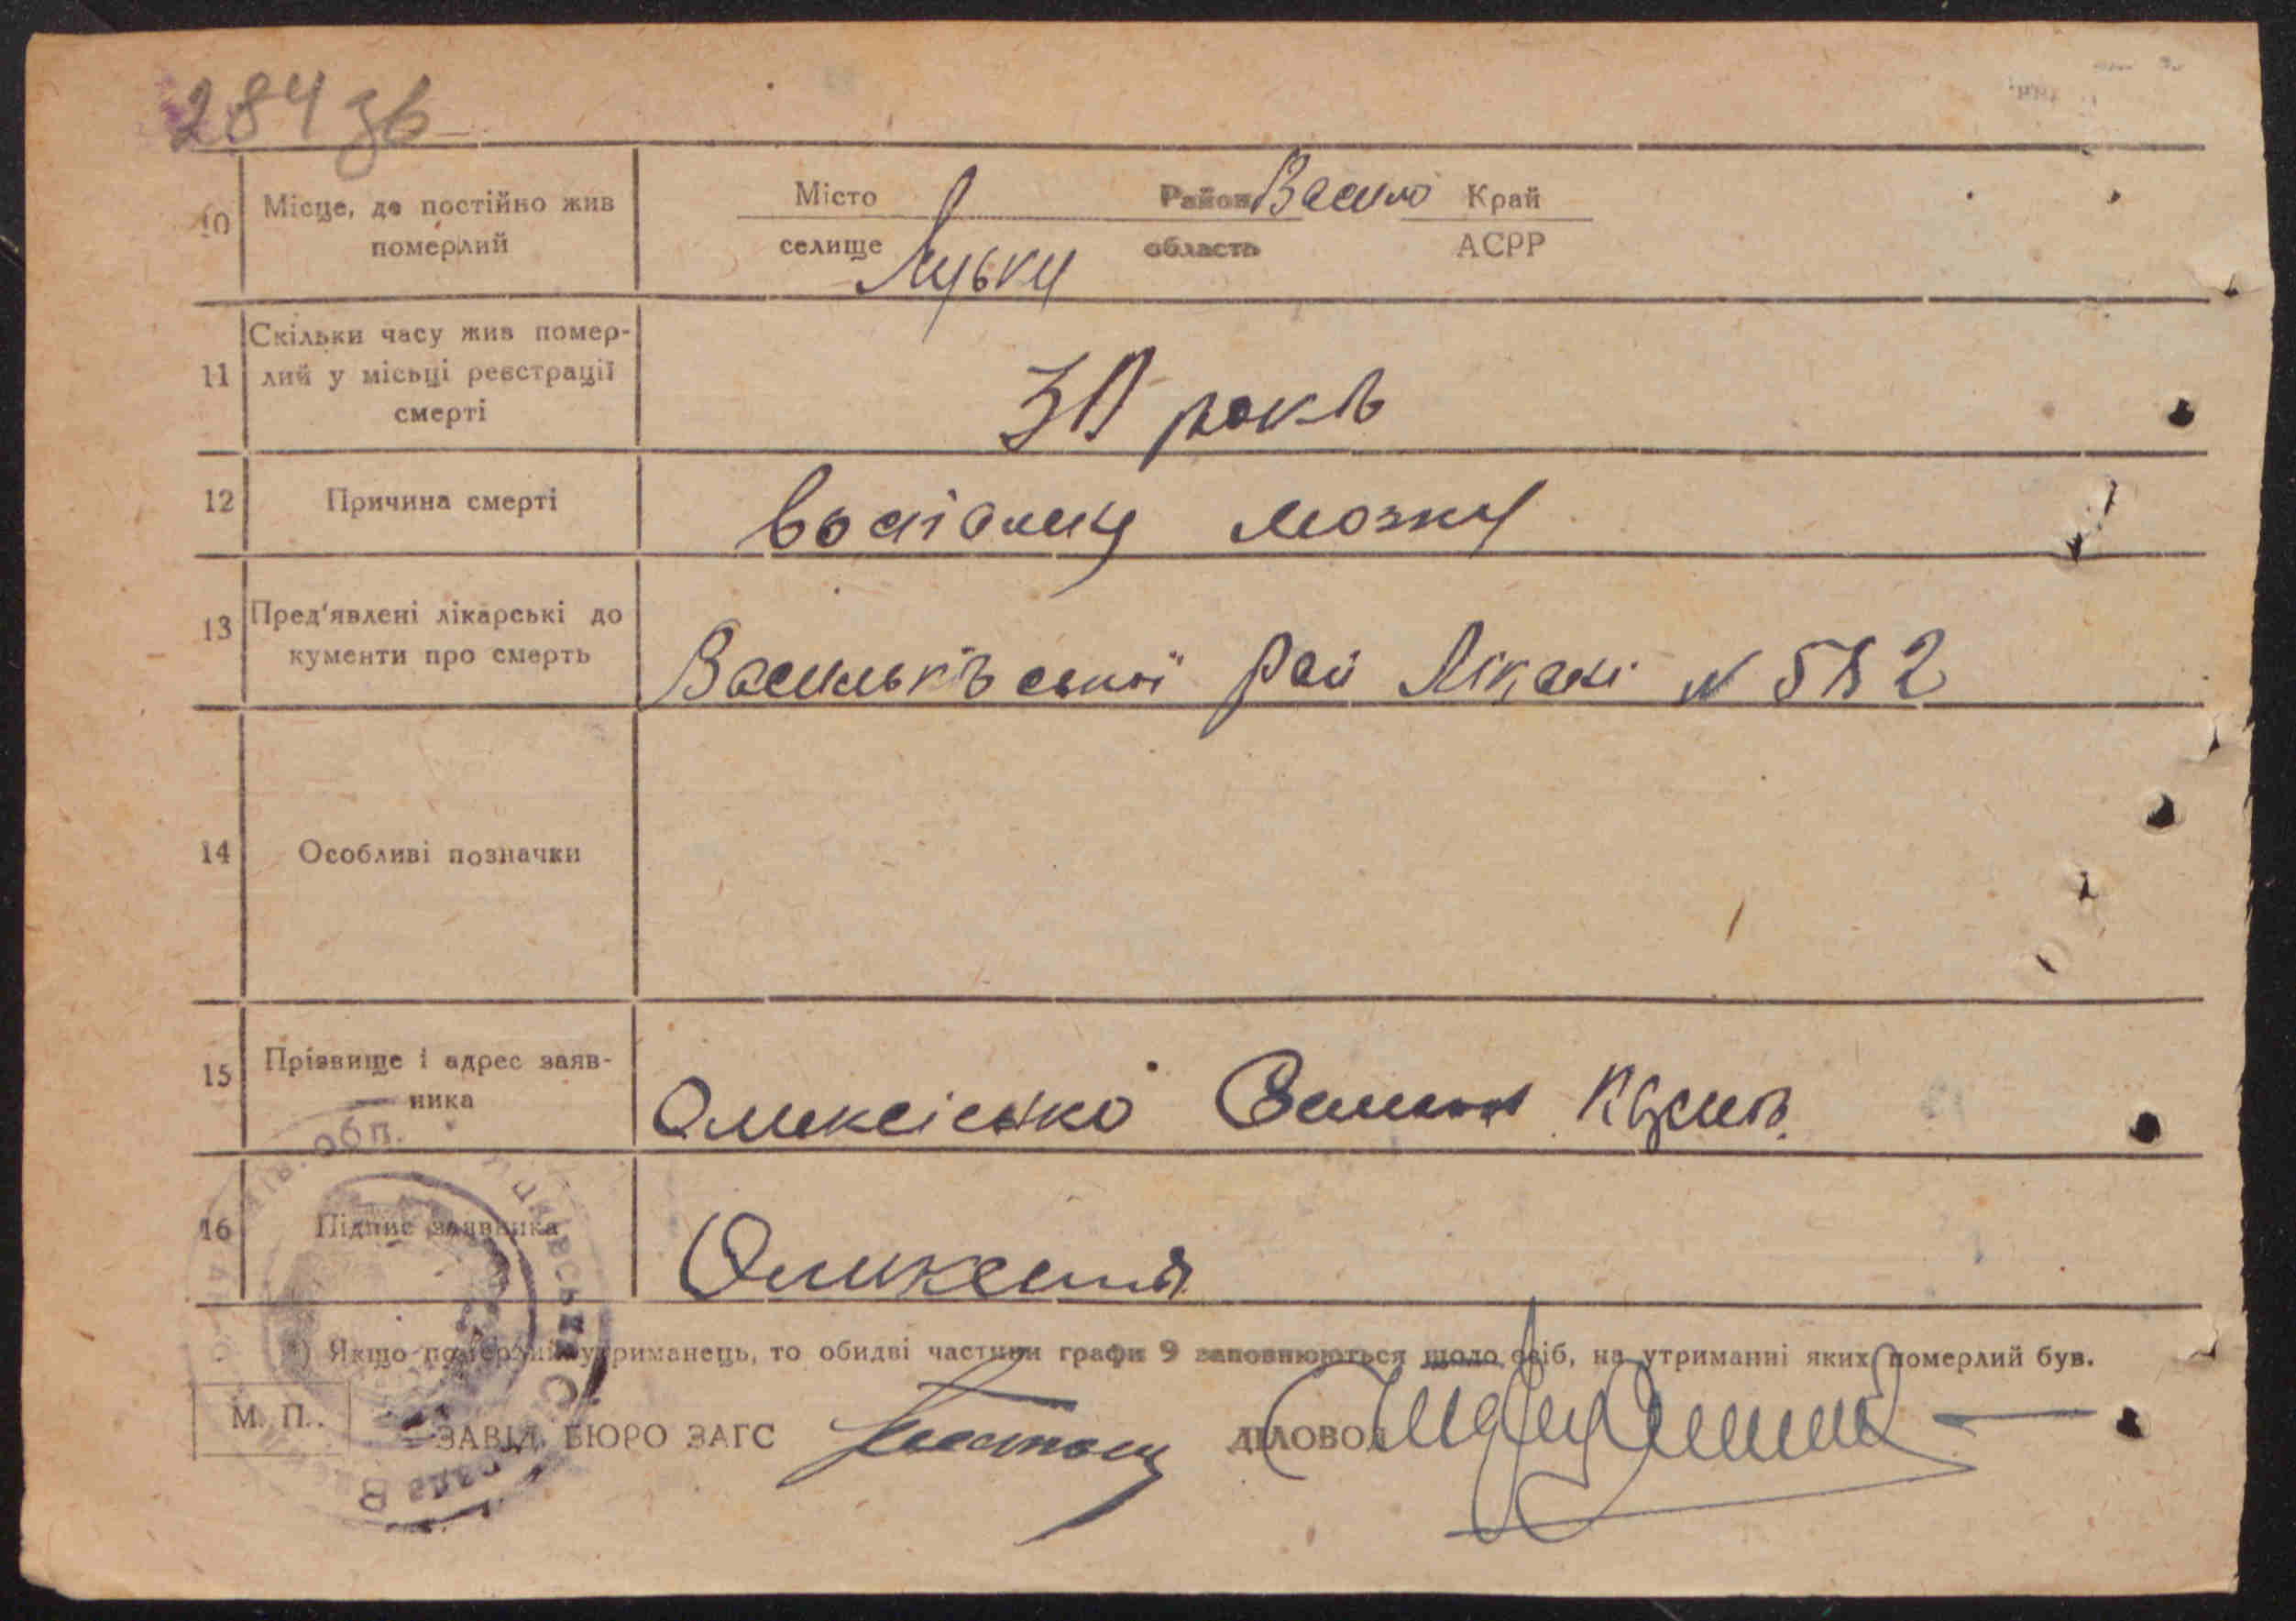 284 зв
10 Місце, де постійно жив померлий
Місто селище Район Васил Край
область АСРР
Луьку
11 Скільки часу жив помер-
лий у місьці реєстрації
смерті
30 років
12 Причина смерті
мозку
13 Пред'явлені лікарські до
кументи про смерть
Васильківської Рай N 582
14 Особливі позначки
15 Прізвище і адрес заяв-
ника
Олексієнко
16 Підпис заявника
*) Якщо померлий утриманець, то обидві частини графи 9 заповнюються щодо осіб, на утриманні яких померлий був.
М. П.
ЗАВІД. БЮРО ЗАГС
ДІЛОВОД